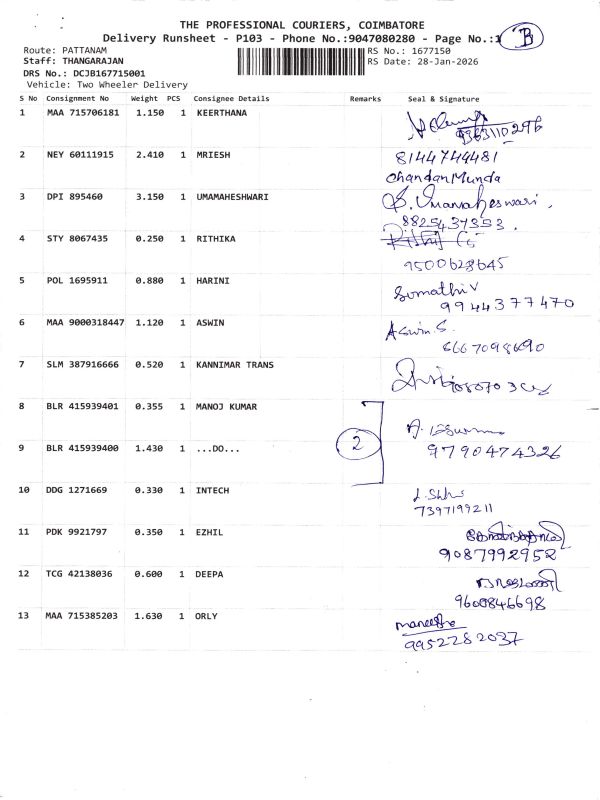 THE PROFESSIONAL COURIERS, COIMBATORE
Delivery Runsheet - P103 - Phone No.:9047080280 - Page No.:1 B
Route: PATTANAM RS No.: 1677150
Staff: THANGARAJAN RS Date: 28-Jan-2026
DRS No.: DCJB167715001
Vehicle: Two Wheeler Delivery
S No Consignment No Weight PCS Consignee Details Remarks Seal & Signature
1 MAA 715706181 1.150 1 KEERTHANA
9363110296
2 NEY 60111915 2.410 1 MRIESH 8144744481
Chandan Munda
3 DPI 895460 3.150 1 UMAMAHESHWARI S. Umamaheswari.
8825437353.
4 STY 8067435 0.250 1 RITHIKA
9500628645
5 POL 1695911 0.880 1 HARINI Sumathi V
9944377470
6 MAA 9000318447 1.120 1 ASWIN Aswin S.
6667098690
7 SLM 387916666 0.520 1 KANNIMAR TRANS
8 BLR 415939401 0.355 1 MANOJ KUMAR
9 BLR 415939400 1.430 1 ...DO... 2 9790474326
10 DDG 1271669 0.330 1 INTECH
7397199211
11 PDK 9921797 0.350 1 EZHIL
9087992952
12 TCG 42138036 0.600 1 DEEPA
9600846698
13 MAA 715385203 1.630 1 ORLY
9952282037